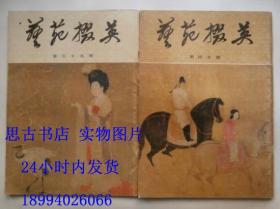 藝苑掇英
第三十九期
藝苑掇英
第四十期
思古书店 实物图片
24小时内发货
18994026066